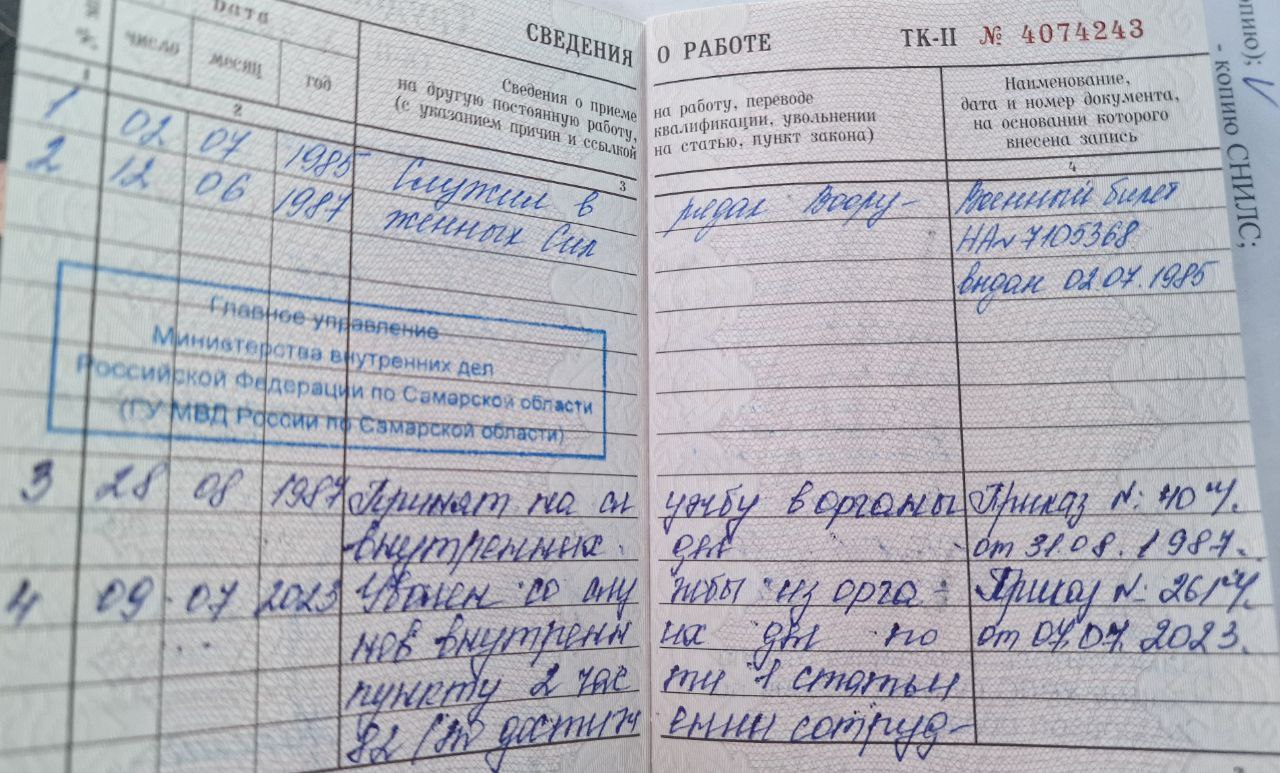 СВЕДЕНИЯ О РАБОТЕ ТК-II № 4074243
Дата
число месяц год
Сведения о приеме на работу, переводе
на другую постоянную работу, квалификации, увольнении
(с указанием причин и ссылкой на статью, пункт закона)
Наименование,
дата и номер документа,
на основании которого
внесена запись
1 2 3 4
1 02 07 1985 Служил в рядах Воору- Военный билет
2 12 06 1987 женных Сил НА№ 7105368
выдан 02.07.1985
Главное управление
Министерства внутренних дел
Российской Федерации по Самарской области
(ГУ МВД России по Самарской области)
3 28 08 1987 Принят на службу в органы Приказ №
внутренних дел от 31.08.1987.
4 09.07 2023 Уволен со службы из орга- Приказ №
нов внутренних дел по от 07.07.2023.
пункту 2 части 1 статьи
82 (по достижении сотруд-
опию);
- копию СНИЛС;